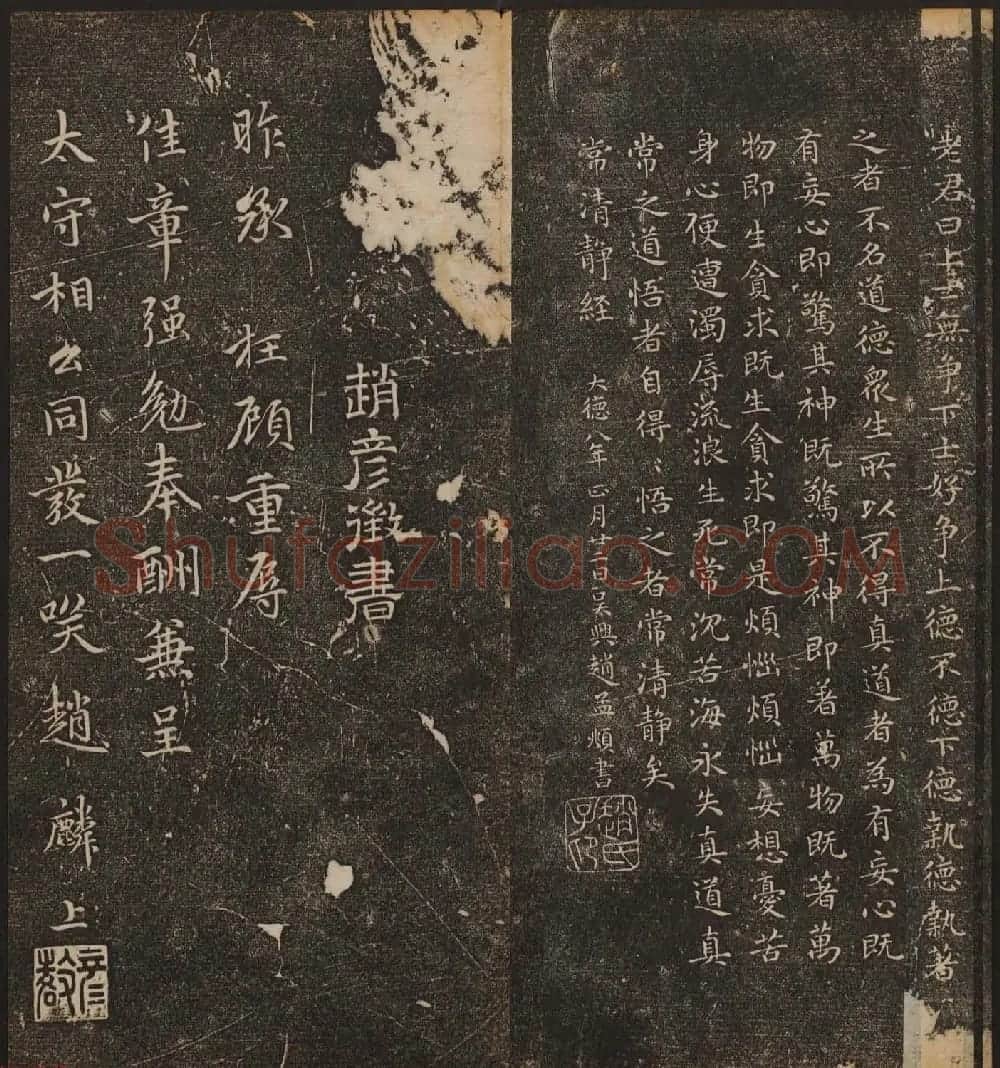 老君曰上士無争下士好争上德不德下德執德執著
之者不名道德衆生所以不得真道者為有妄心既
有妄心即驚其神既驚其神即著萬物既著萬
物即生貪求既生貪求即是煩惱煩惱妄想憂苦
身心便遭濁辱流浪生死常沉苦海永失真道真
常之道悟者自得〻悟之者常清静矣
常清靜経
大德八年正月十二日吴興趙孟頫書
趙氏子昂
趙彦徵書
昨承 枉顧重辱
佳章强勉奉酬兼呈
太守相公同發一笑趙 麟 上
彦徵
Shufaziliao.COM